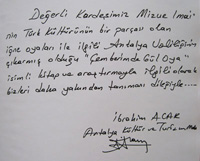 Değerli Kardeşimiz Mizue Imai'
nin Türk Kültürünün bir parçası olan
iğne oyaları ile ilgili Antalya Valiliğinin
çıkarmış olduğu "Çemberimde Gül Oya"
isimli kitap ve araştırmayla ilgili olarak
bizleri daha yakından tanıması dileğiyle....
İbrahim ACAR
Antalya Kültür ve Turizm Müd.